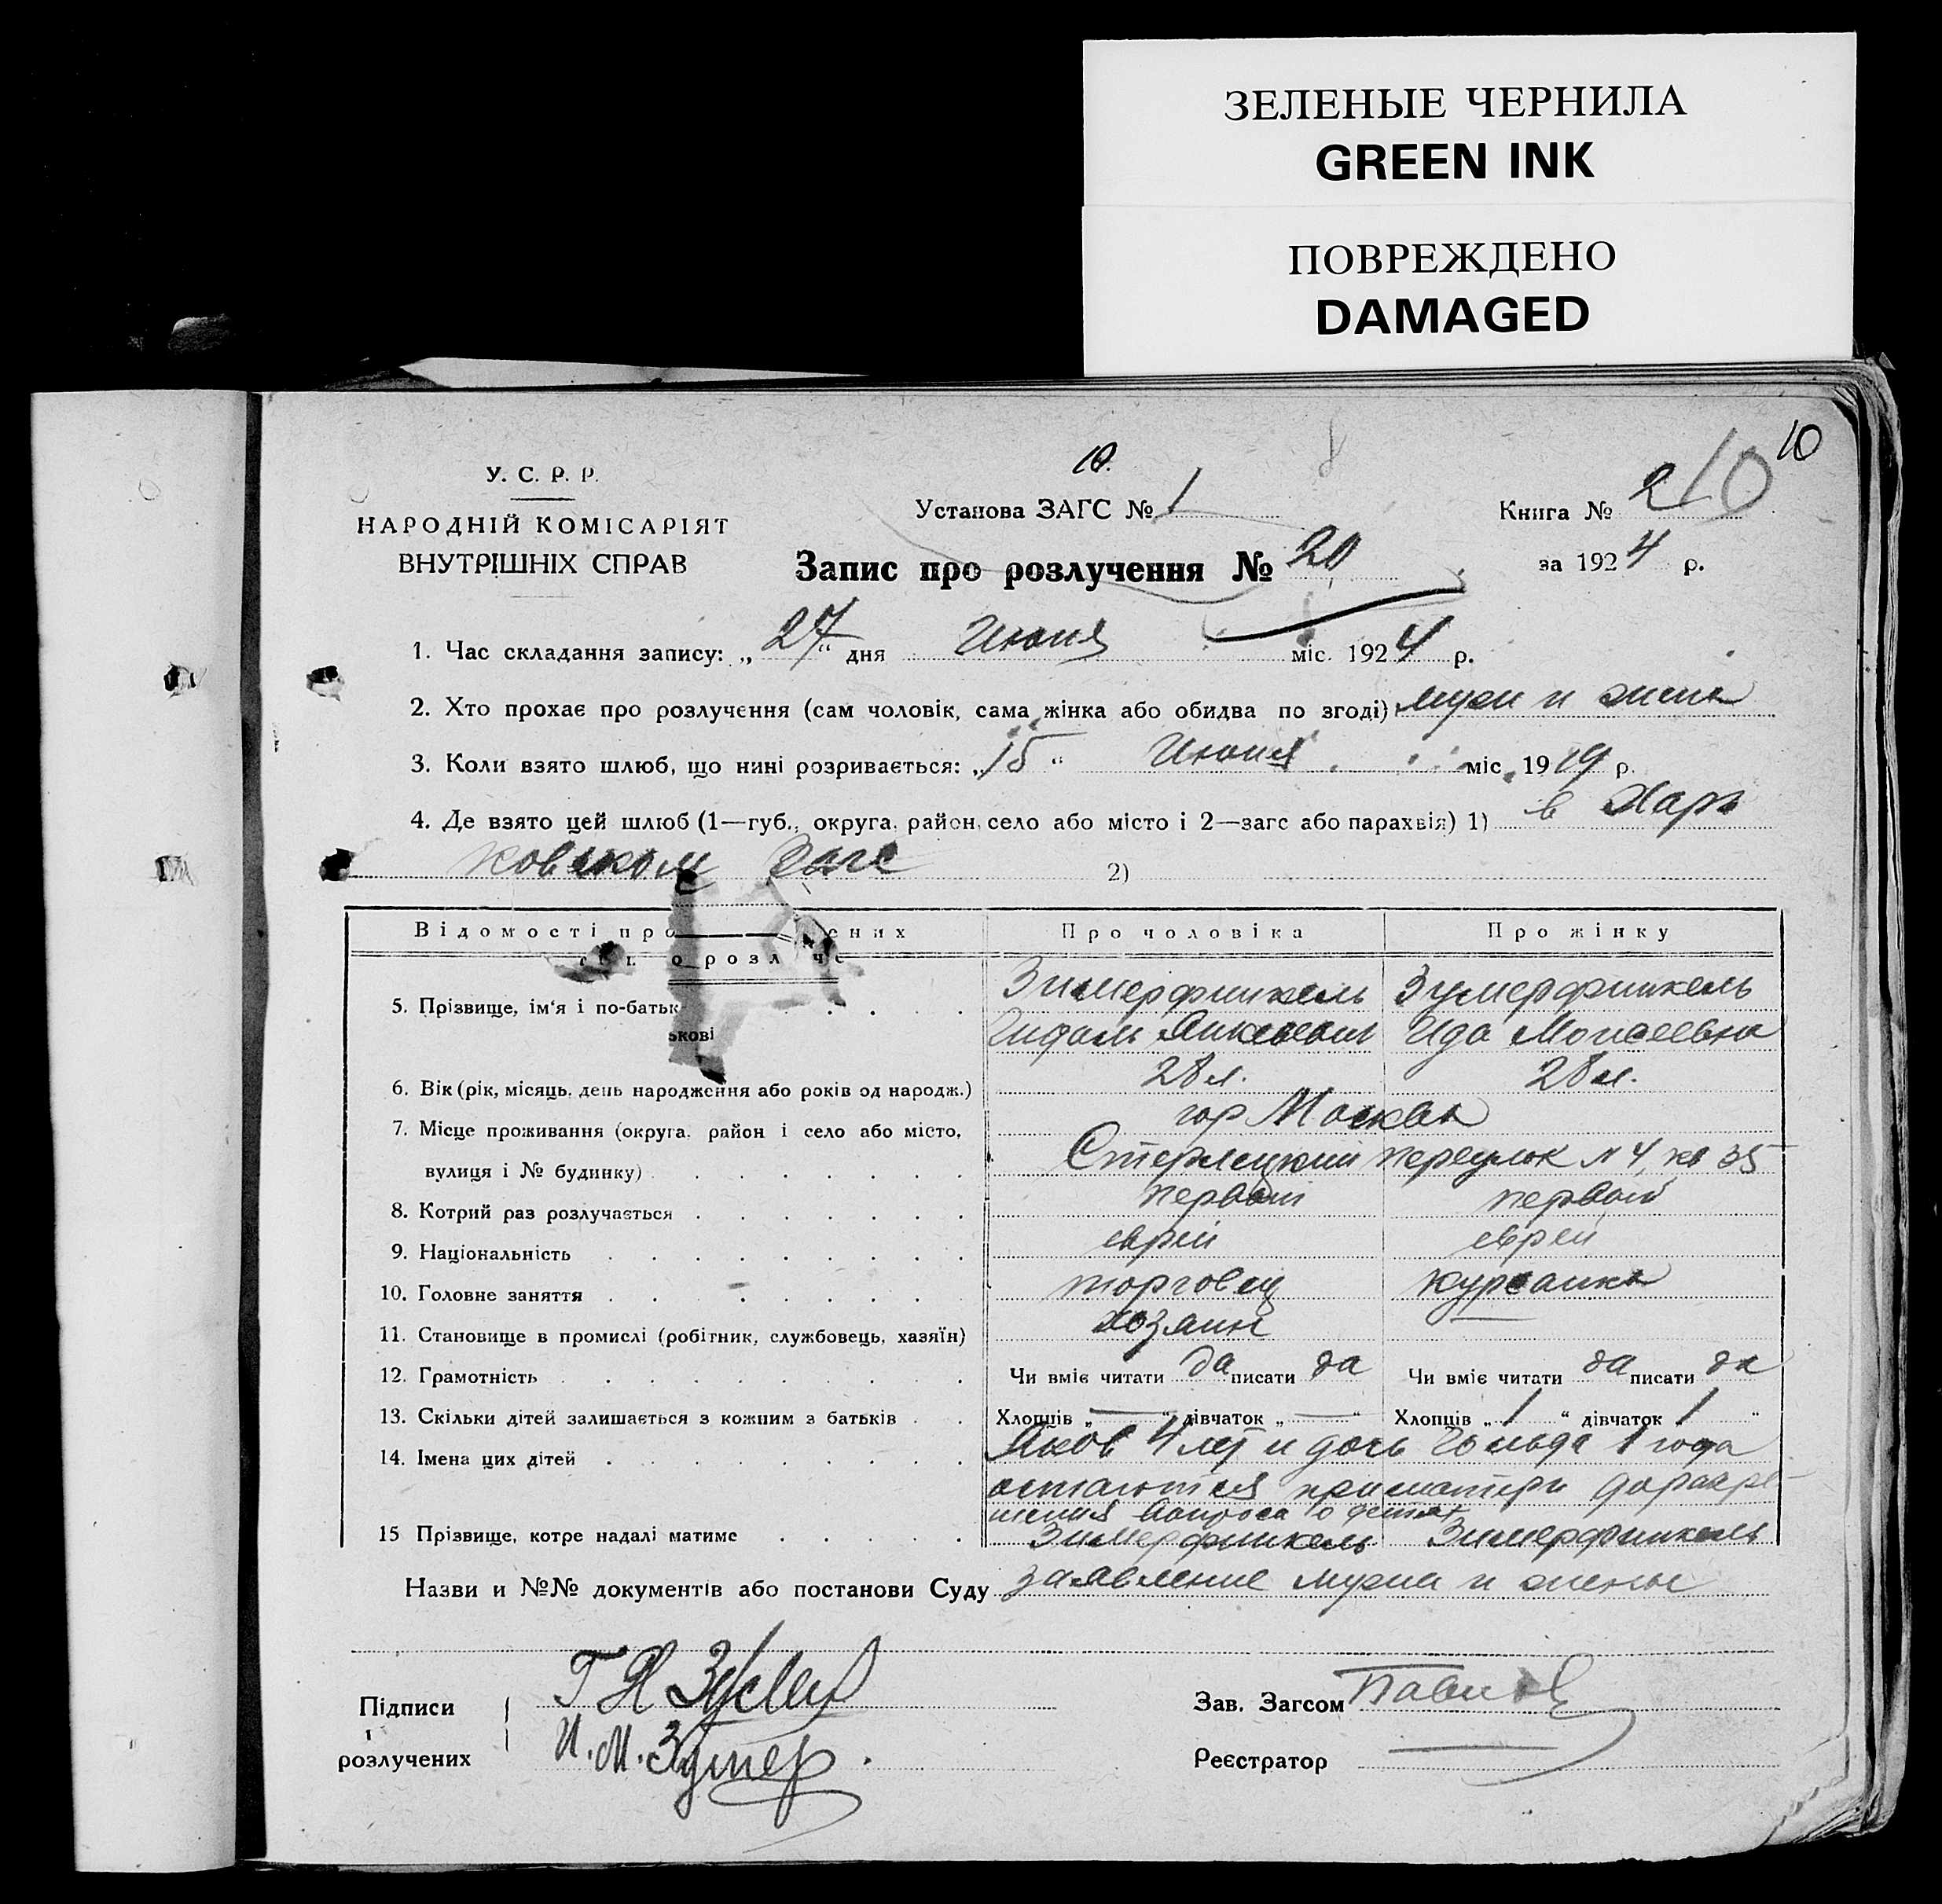 ЗЕЛЕНЫЕ ЧЕРНИЛА
GREEN INK
ПОВРЕЖДЕНО
DAMAGED
10
10.
У. С. Р. Р.
НАРОДНІЙ КОМІСАРІЯТ
ВНУТРІШНІХ СПРАВ
Установа ЗАГС № 1
Книга № 2 10
Запис про розлучення № 20
за 1924 р.
1. Час складання запису: „27“ дня Июня міс. 1924 р.
2. Хто прохає про розлучення (сам чоловік, сама жінка або обидва по згоді) муж и жена
3. Коли взято шлюб, що нині розривається: „15“ Июня міс. 1919 р.
4. Де взято цей шлюб (1—губ., округа, район, село або місто і 2—загс або парахвія) 1) в Харь
ковском Загс 2)
Відомості про ених Про чоловіка Про жінку
о розл че
5. Прізвище, ім‘я і по-батьк Зимерфинкель Зумерфинкель
ькові Ида Моисеевна
6. Вік (рік, місяць, день народження або років од народж.) 28 л. 28 л.
7. Місце проживання (округа, район і село або місто, гор Москва
вулиця і № будинку) переулок N 4, кв 35
8. Котрий раз розлучається первый первый
9. Національність еврей еврей
10. Головне заняття торговец курсантка
11. Становище в промислі (робітник, службовець, хазяїн) хозяин —
12. Грамотність Чи вміє читати да писати да Чи вміє читати да писати да
13. Скільки дітей залишається з кожним з батьків Хлопців „—“ дівчаток „—“ Хлопців „1“ дівчаток „1“
14. Імена цих дітей Яков 4 лет и дочь Гольда 1 года
остаются при матери до разре-
шения вопроса о детях
15 Прізвище, котре надалі матиме Зимерфинкель Зимерфинкель
Назви и №№ документів або постанови Суду заявление мужа и жены
Підписи
і
розлучених
И. М. Зумер
Зав. Загсом
Реєстратор —